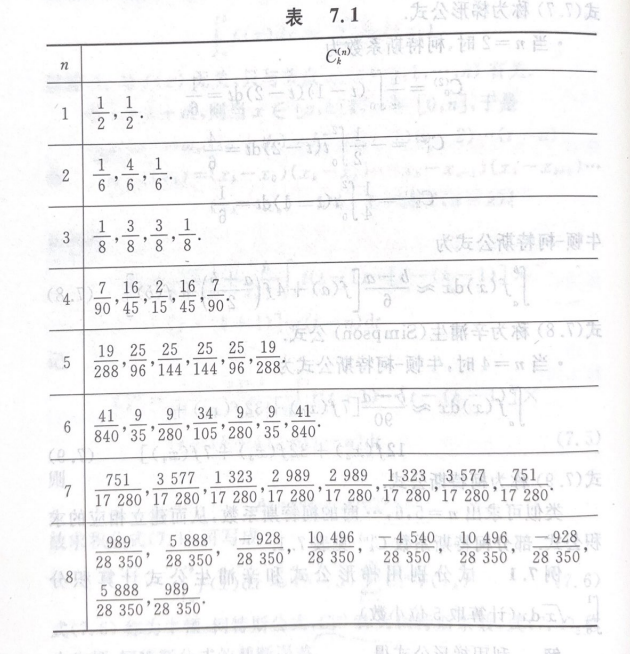 表 7.1
n C_k^{(n)}
1 1/2, 1/2.
2 1/6, 4/6, 1/6.
3 1/8, 3/8, 3/8, 1/8.
4 7/90, 16/45, 2/15, 16/45, 7/90.
5 19/288, 25/96, 25/144, 25/144, 25/96, 19/288.
6 41/840, 9/35, 9/280, 34/105, 9/280, 9/35, 41/840.
7 751/17 280, 3 577/17 280, 1 323/17 280, 2 989/17 280, 2 989/17 280, 1 323/17 280, 3 577/17 280, 751/17 280.
8 989/28 350, 5 888/28 350, −928/28 350, 10 496/28 350, −4 540/28 350, 10 496/28 350, −928/28 350,
5 888/28 350, 989/28 350.